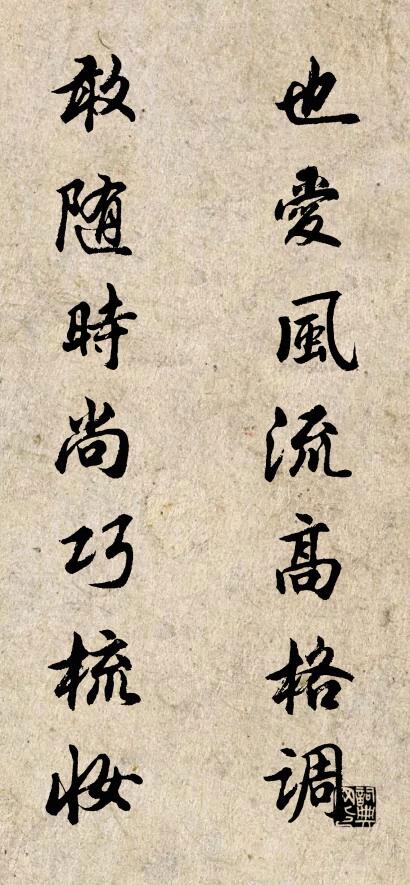 也愛風流高格調
敢随時尚巧梳妆